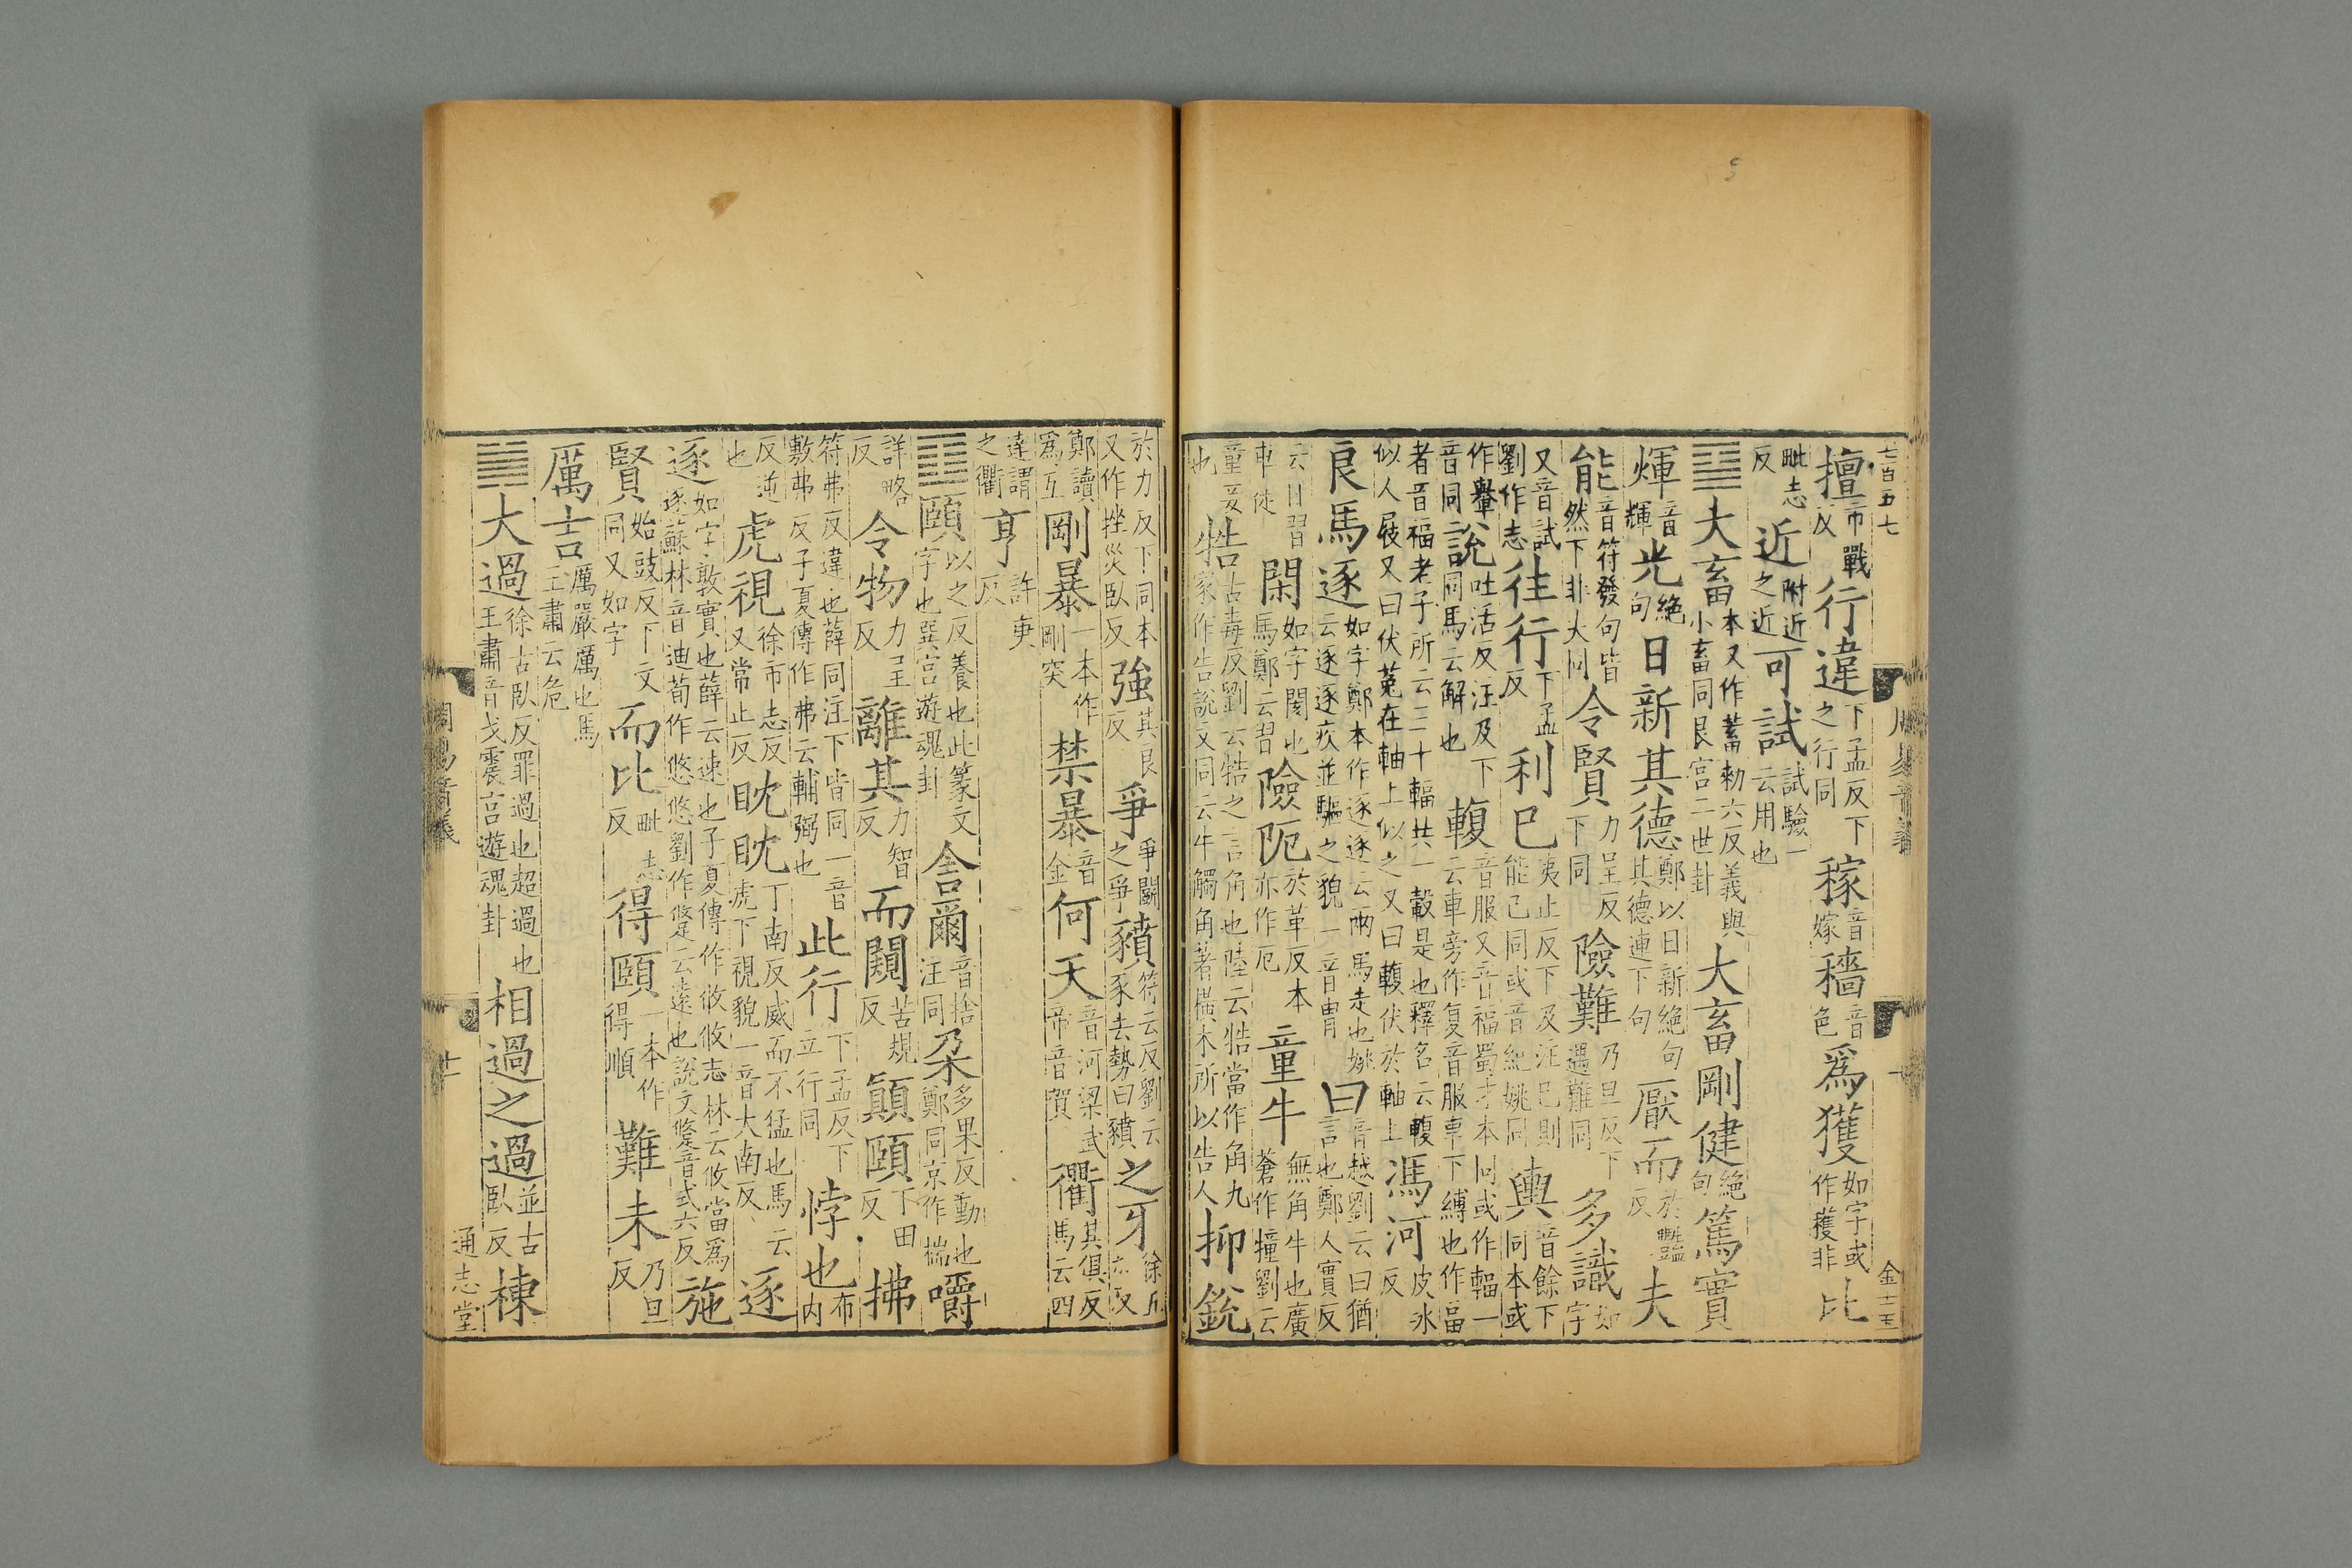 七百五七 周易音義 十 金士玉
擅市戰反行違下孟反下之行同稼音嫁穡音色爲獲如字或作穫非比
毗志反近附近之近可試試驗一云用也
䷙大畜本又作蓄勑六反義與小畜同艮宫二世卦大畜剛健絶句篤實
煇音輝光絶句日新其德鄭以日新絶句其德連下句厭而於豔反夫
能音符發句皆然下非大同令賢力呈反下同險難乃旦反下遇難同多識如字
又音試劉作志往行下孟反利已夷止反下及注已則能已同或音紀姚同輿音餘下同本或
作轝音同說吐活反注及下同馬云解也輹音服又音福蜀才本同或作輻一云車旁作复音服車下縛也作畐
者音福老子所云三十輻共一轂是也釋名云輹似人屐又曰伏菟在軸上似之又曰輹伏於軸上馮河皮冰反
良馬逐如字鄭本作逐逐云兩馬走也姚云逐逐疾並驅之貌一音冑曰音越劉云曰猶言也鄭人實反
云日習車徒閑如字閡也馬鄭云習險阨於革反本亦作厄童牛無角牛也廣蒼作犝劉云
童妾也牿古毒反劉云牿之言角也陸云牿當作角九家作告說文同云牛觸角著橫木所以告人抑銳
於力反下同本又作挫災臥反強其良反爭爭鬭之爭豶符云反劉云豕去勢曰豶之牙徐五加反
鄭讀爲互剛暴一本作剛突禁暴音金何天音河梁武帝音賀衢其俱反馬云四
達謂之衢亨許庚反
䷚頤以之反養也此篆文字也巽宫遊魂卦舍爾音捨注同朵多果反動也鄭同京作揣嚼
詳略反令物力呈反離其力智反而闚苦規反顛頤下田反拂
符弗反違也薛同注下皆同一音敷弗反子夏傳作弗云輔弼也此行下孟反下立行同悖也布内
反逆也虎視徐市志反又常止反眈眈丁南反威而不猛也馬云虎下視貌一音大南反逐
逐如字敦實也薛云速也子夏傳作攸攸志林云攸當爲逐蘇林音迪荀作悠悠劉作䠱云遠也說文䠱音式六反施
賢始豉反下文同又如字而比毗志反得頤一本作得順難未乃旦反
厲吉厲嚴厲也馬王肅云危
䷛大過徐古臥反罪過也超過也王肅音戈震宫遊魂卦相過之過並古臥反棟
周易音義 廿 通志堂